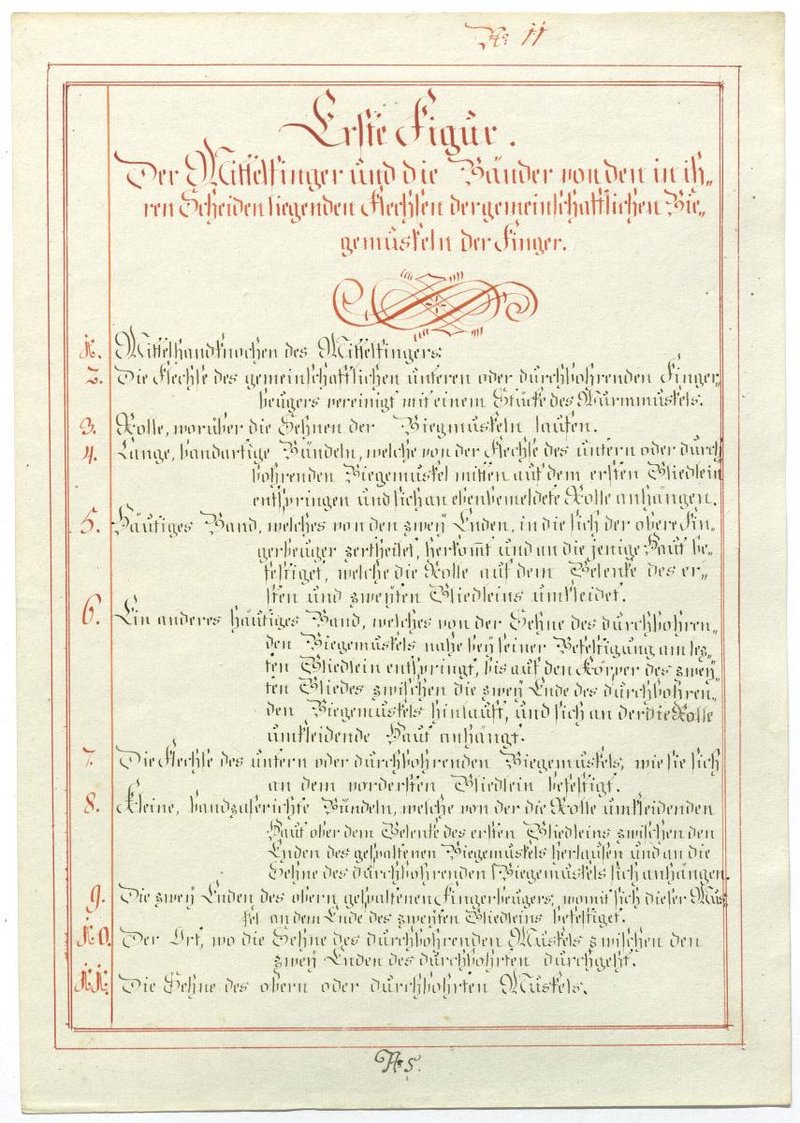 No 11
Erste Figur.
Der Mittelfinger und die Bänder von den in ih„
ren Scheiden liegenden Flechsen der gemeinschaftlichen Bie„
gemuskeln der Finger.
1. Mittelhandknochen des Mittelfingers.
2. Die Flechse des gemeinschaftlichen unteren oder durchbohrenden Finger„
beugers vereinigt mit einem Stücke des Wurmmuskels.
3. Rolle, worüber die Sehnen der Biegmuskeln laufen.
4. Lange, bandartige Bündeln, welche von der Flechse des untern oder durch
bohrenden Biegemuskel mitten auf dem ersten Gliedlein
entspringen und sich an ebenbemeldete Rolle anhängen.
5. Häutiges Band, welches von den zwey Enden, in die sich der obere Fin„
gerbeuger zertheilet, herkom̄t und an die jenige Haut be„
festiget, welche die Rolle auf dem Gelenke des er„
sten und zweyten Gliedleins umkleidet.
6. Ein anderes häutiges Band, welches von der Sehne des durchbohren„
den Biegemuskels nahe bey seiner Befestigung am lez„
ten Gliedlein entspringt, bis auf den Körper des zwey„
ten Gliedes zwischen die zwey Ende des durchbohren„
den Biegemuskels hinlauft, und sich an der die Rolle
umkleidende Haut anhängt.
7. Die Flechse des untern oder durchbohrenden Biegemuskels, wie sie sich
an dem vordersten Gliedlein befestigt.
8. Kleine, bandzaserichte Bündeln, welche von der die Rolle umkleidenden
Haut ober dem Gelenke des ersten Gliedleins zwischen den
Enden des gespaltenen Biegemuskels herlaufen und an die
Sehne des durchbohrenden Biegemuskels sich anhängen.
9. Die zwey Enden des obern gespaltenen Fingerbeugers, womit sich dieser Mus„
kel an dem Ende des zweyten Gliedleins befestiget.
10. Der Ort, wo die Sehne des durchbohrenden Muskels zwischen den
zwey Enden des durchbohrten durchgeht.
11. Die Sehne des obern oder durchbohrten Muskels.
No 5.